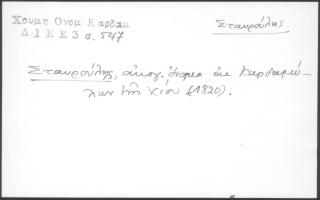 Χουμη Ονομ Καρδαμ
Δ.Ι Ε Ε 3 σ. 547
Σταυρούλης
Σταυρούλης, οἰκογ. ὄνομα ἐκ Καρδαμύ-
λων τῆς Χίου (1820).